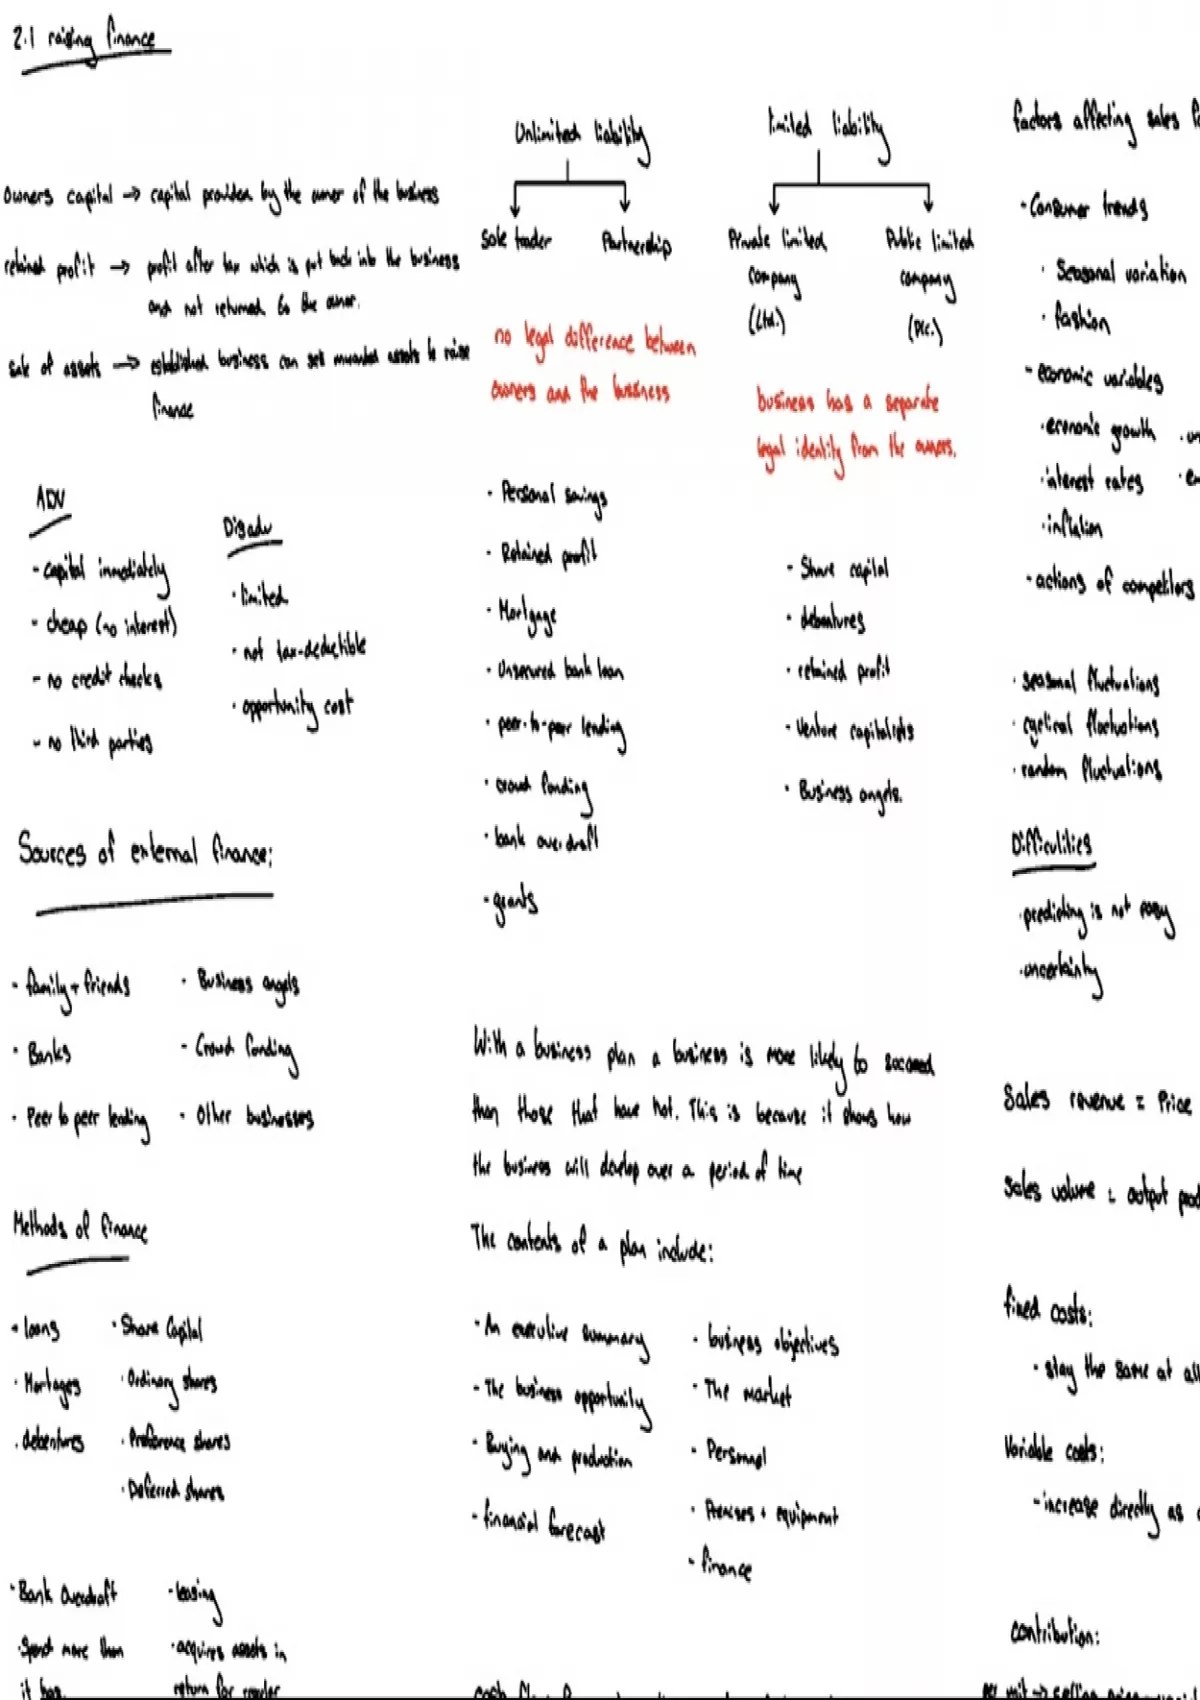 2.1 raising finance
Owners capital → capital provided by the owner of the business
retained profit → profit after tax which is put back into the business
and not returned to the owner.
sale of assets → established business can sell unwanted assets to raise
finance
ADV
- capital immediately
- cheap (no interest)
- no credit checks
- no third parties
Disadv
· limited
· not tax-deductible
· opportunity cost
Sources of external finance:
- family + friends
· Banks
· Peer to peer lending
· Business angels
- Crowd funding
· Other businesses
Methods of finance
· loans
· Mortages
· debentures
· Share Capital
· Ordinary shares
· Preference shares
· Deferred shares
· Bank Overdraft
· Spend more than
it has.
· leasing
· acquires assets in
return for regular
Unlimited liability
Sole trader
Partnership
no legal difference between
owners and the business
· Personal savings
· Retained profit
· Mortgage
· Unsecured bank loan
· peer-to-peer lending
· crowd funding
· bank overdraft
· grants
limited liability
Private limited
company
(Ltd.)
Public limited
company
(Plc.)
business has a separate
legal identity from the owners.
· Share capital
· debentures
· retained profit
· Venture capitalists
· Business angels.
With a business plan a business is more likely to succeed
than those that have not. This is because it shows how
the business will develop over a period of time
The contents of a plan include:
· An executive summary
- The business opportunity
· Buying and production
· financial forecast
· business objectives
· The market
· Personnel
· Premises + equipment
· finance
cash flow
factors affecting sales
· Consumer trends
· Seasonal variation
· fashion
- economic variables
· economic growth
· interest rates
· inflation
· actions of competitors
· seasonal fluctuations
· cyclical fluctuations
· random fluctuations
Difficulities
· predicting is not easy
· uncertainty
Sales revenue = Price
Sales volume = output
fixed costs:
· stay the same at
Variable costs:
- increase directly as
contribution:
per unit → selling price